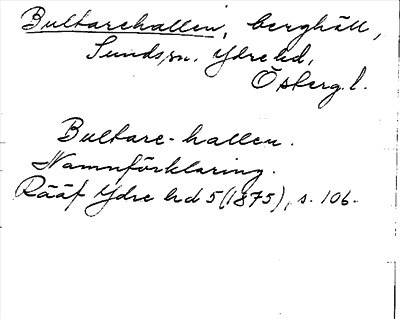 Bultarehallen, berghäll,
Sunds sn. Ydre hd,
Österg. l.
Bultare-hallen.
Namnförklaring.
Rääf Ydre hd 5 (1875), s. 106.